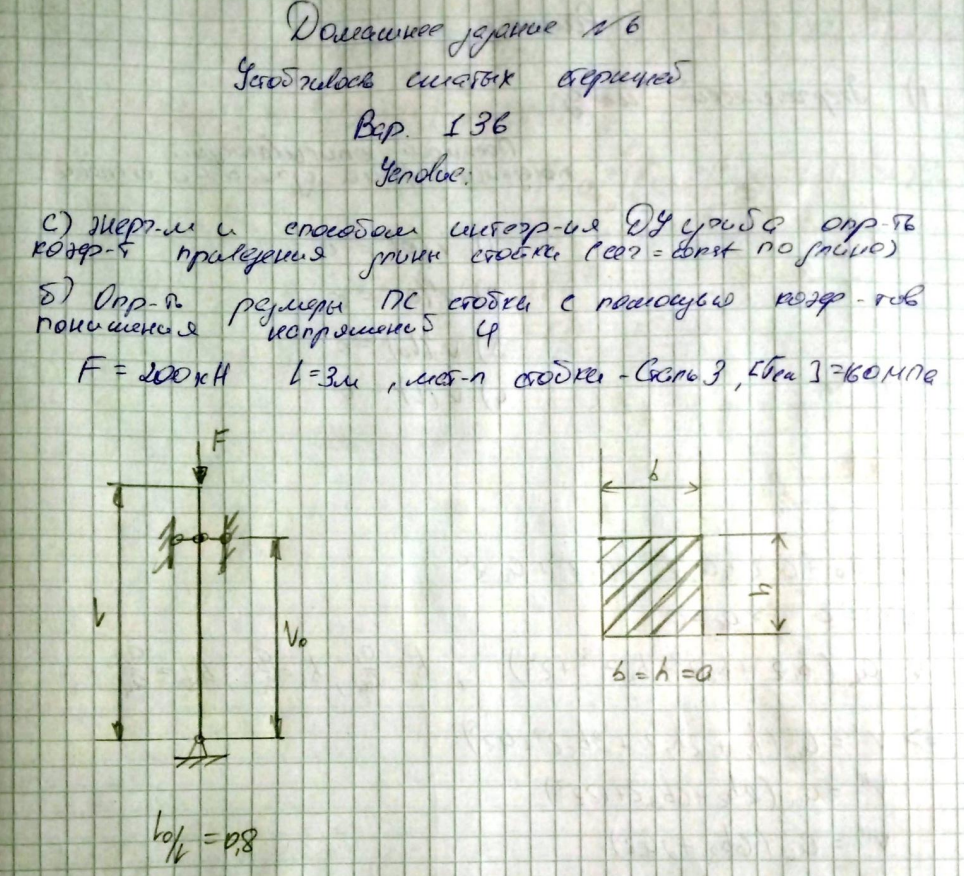 Домашнее задание №6
Устойчивость сжатых стержней
Вар. 136
Условие:
а) Энерг-м и способом интегр-ия ДУ изгиба опр-ть
коэф-т приведения длины стойки (сеч = const по длине)
б) Опр-ть размеры ПС стойки с помощью коэф-тов
понижения напряжений φ
F = 200кН l = 3м , мат-л стойки - Сталь 3 , [σсж] = 160 МПа
F
b
l
l₀
h
b = h = a
l₀/l = 0,8